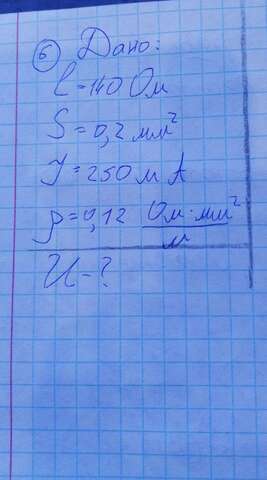 6 Дано:
l=140 Ом
S=0,2 мм²
J=250 мА
ρ=0,12 Ом·мм²/м
U-?